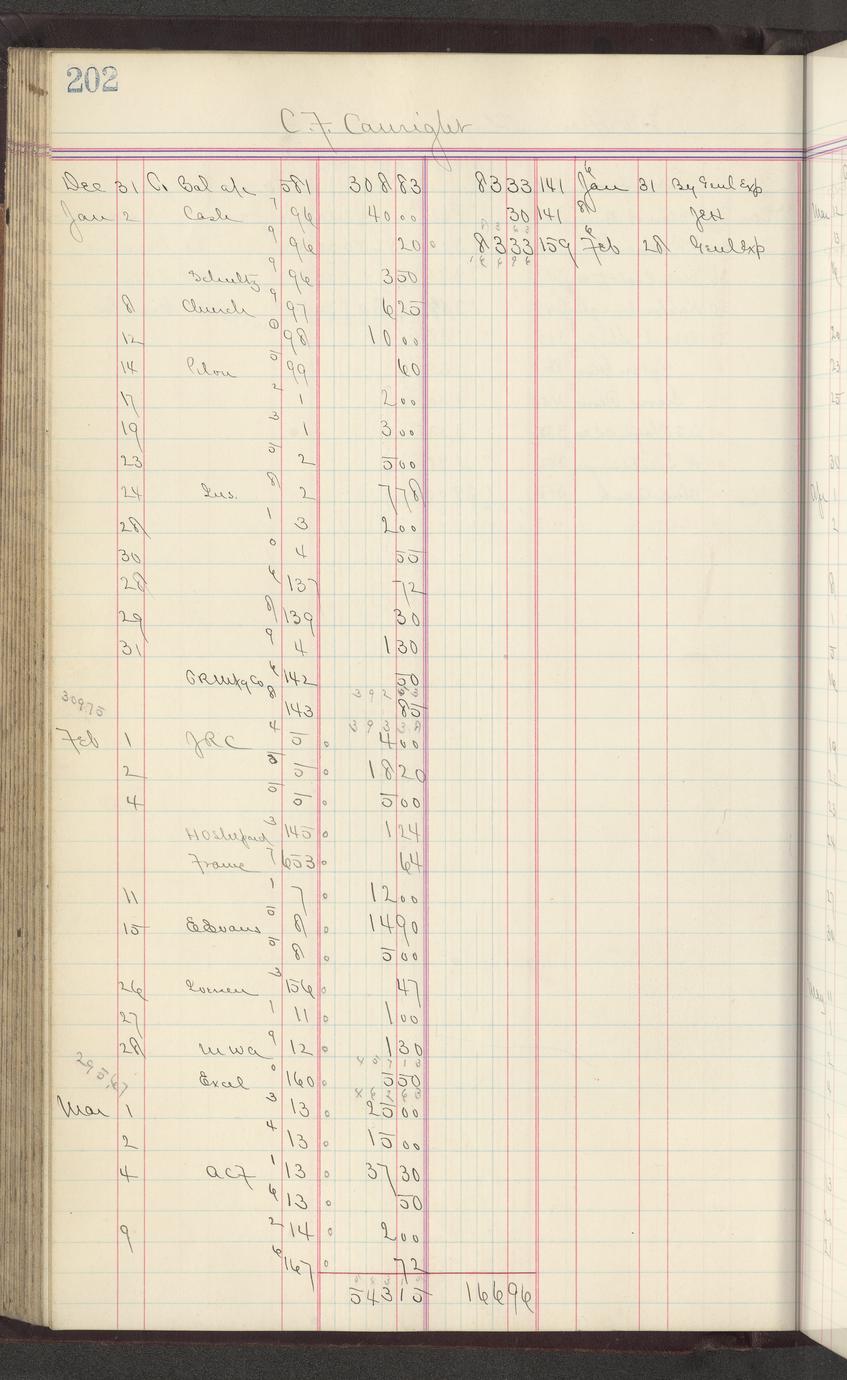 202
C. F. Cauright
Dec 31 C. Bal a/c 581 308 83 83 33 141 Jan 31 By Genl Exp
Jan 2 Cash 7 96 40 00 30 141 JCH
9 96 20 83 33 159 Feb 28 Genl Exp
Schultz 9 96 3 50
8 Church 9 97 6 25
12 0 98 10 00
14 5 99 60
17 2 1 2 00
19 3 1 3 00
23 5 2 5 00
24 Ins. 8 2 7 78
28 1 3 2 00
30 0 4 55
28 6 137 72
29 8 139 30
31 9 4 1 30
6 142 50
392 63
309.75 8 143 85
393 38
Feb 1 JRC 4 5 4 00
2 5 5 18 20
4 5 5 5 00
3 145 1 24
Frame 7 653 64
11 1 7 12 00
15 E Evans 5 8 14 90
5 8 5 00
26 Lomen 3 156 47
27 1 11 1 00
28 MWA 9 12 1 30
457 13
295.67 Excel 0 160 5 50
462 63
Mar 1 3 13 25 00
2 4 13 15 00
4 ACF 1 13 37 30
6 13 50
9 2 14 2 00
6 167 72
543 15 166 96